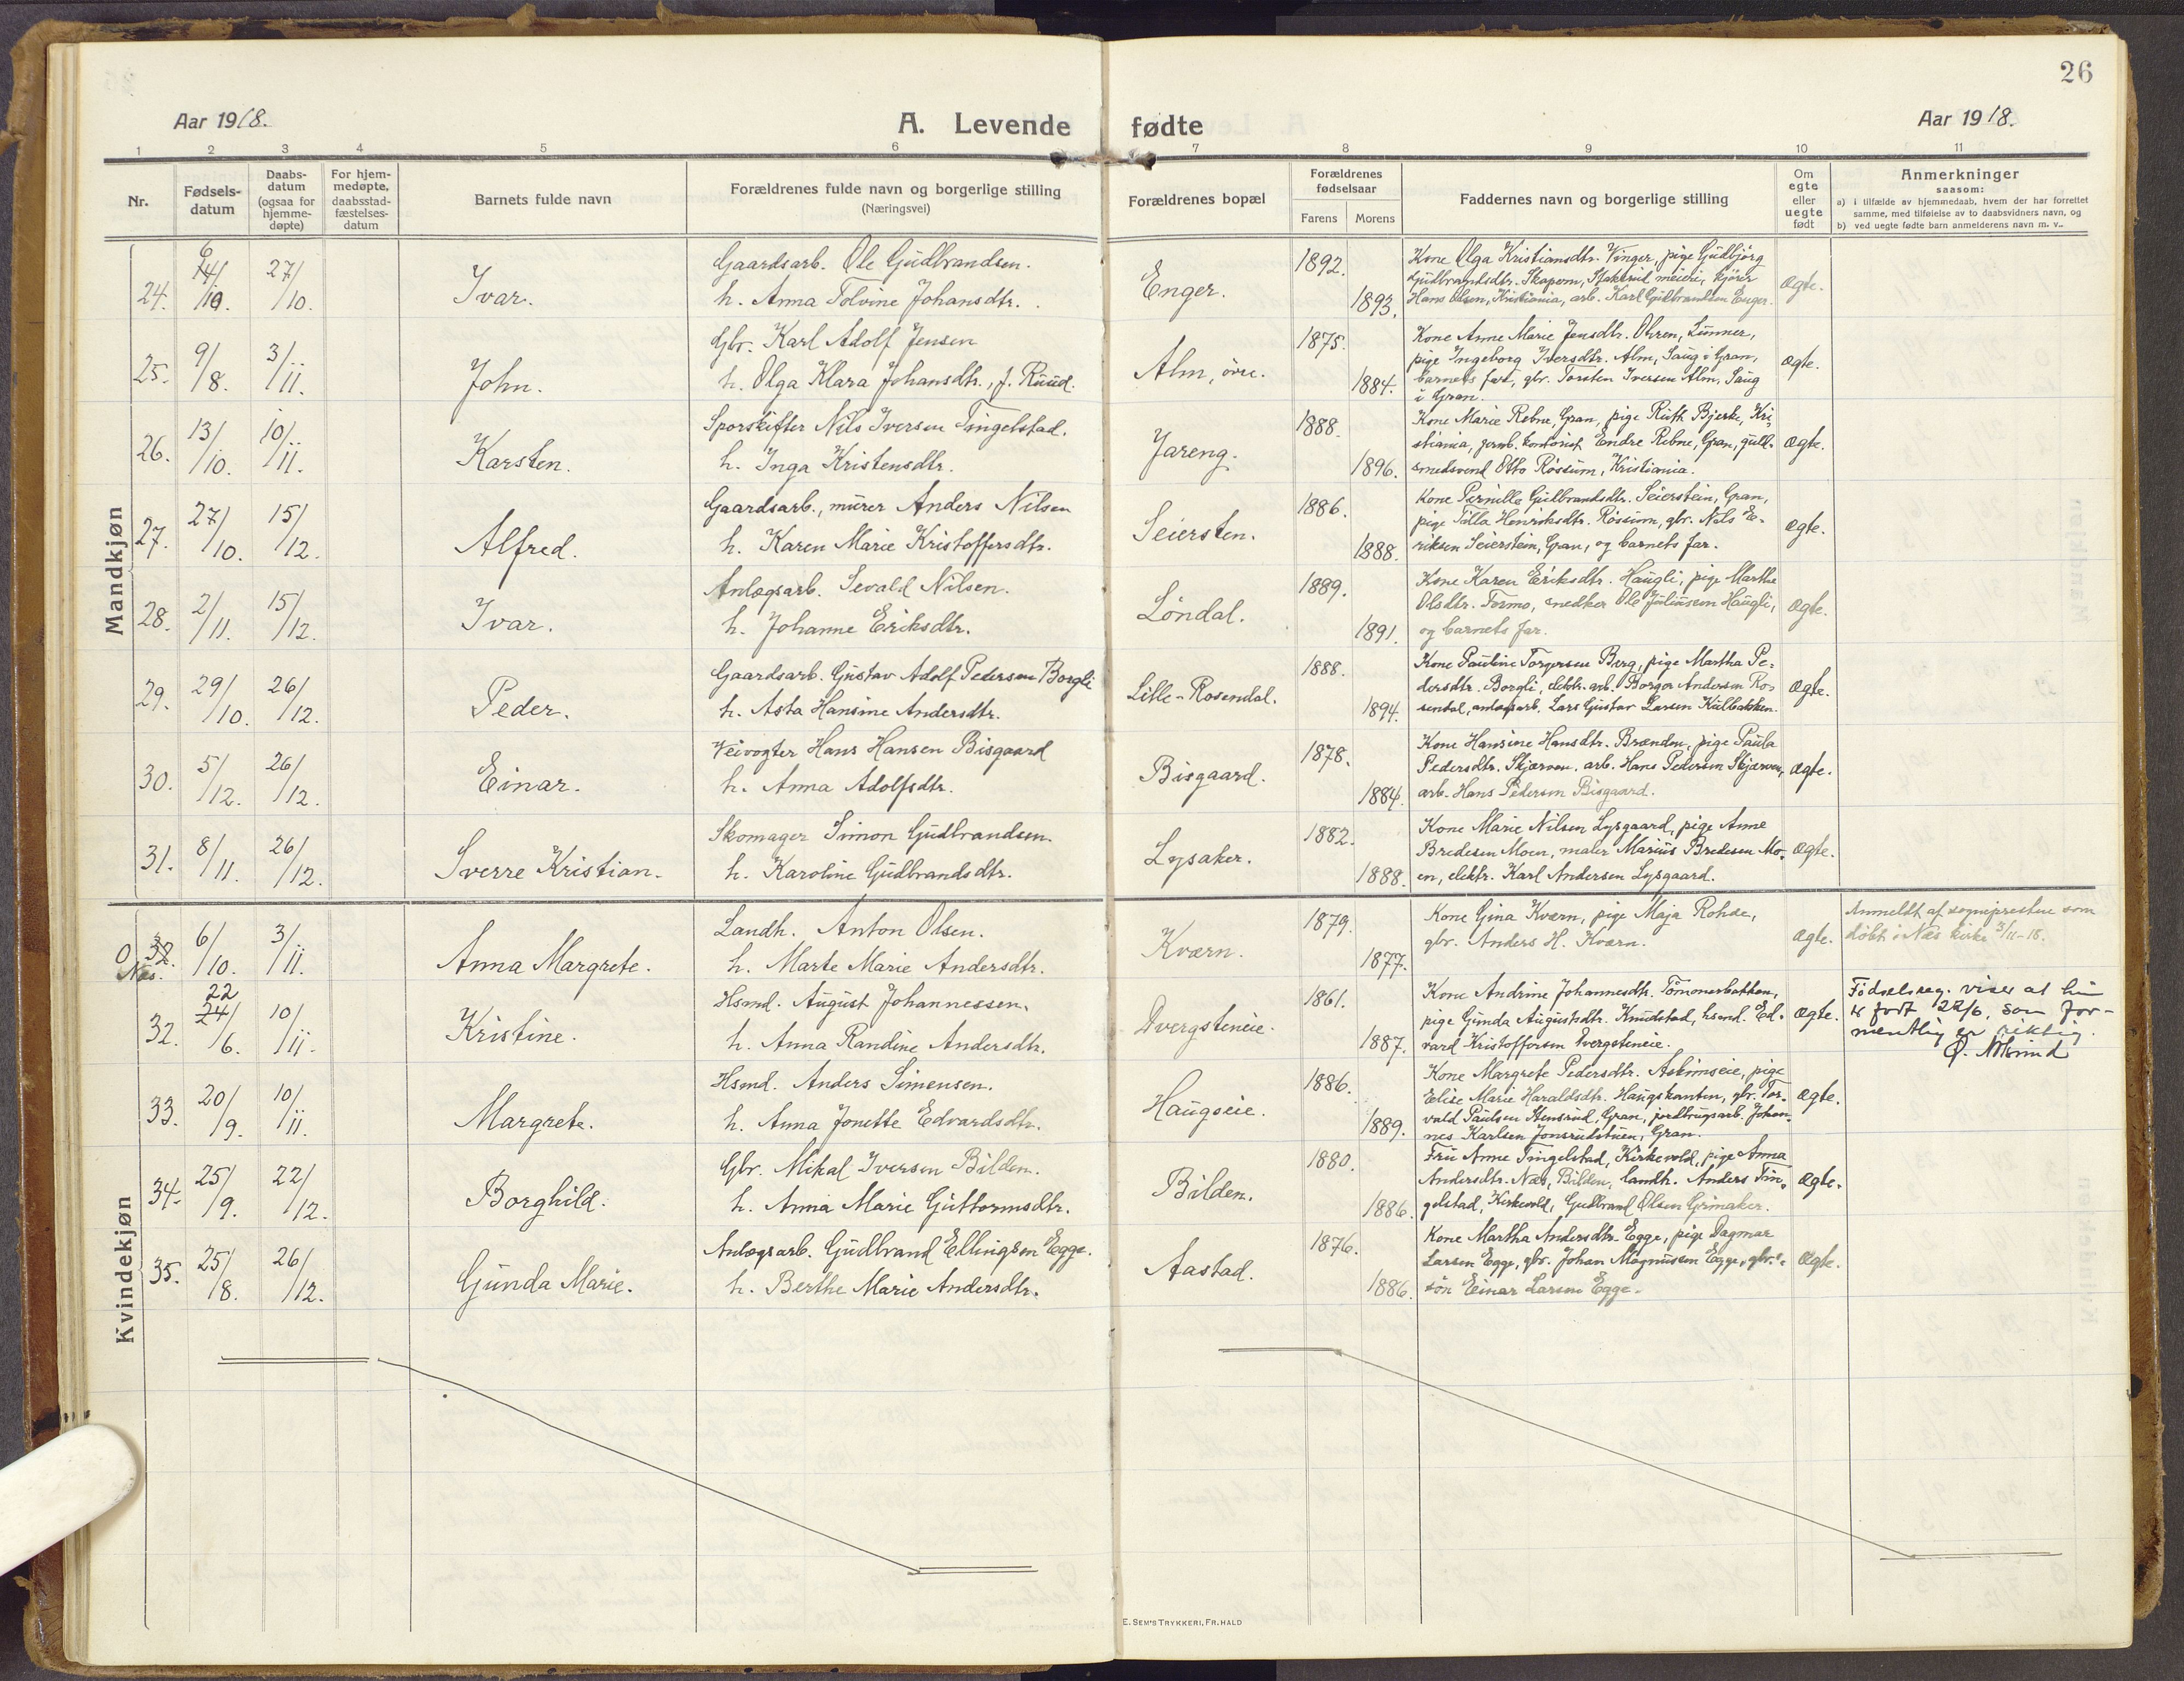 26
Aar 1918.
A. Levende fødte
Aar 1918.
1 2 3 4 5 6 7 8 9 10 11
Nr.
Fødsels-
datum
Daabs-
datum
(ogsaa for
hjemme-
døpte)
For hjem-
medøpte,
daabsstad-
fæstelses-
datum
Barnets fulde navn
Forældrenes fulde navn og borgerlige stilling
(Næringsvei)
Forældrenes bopæl
Forældrenes
fødselsaar
Farens Morens
Faddernes navn og borgerlige stilling
Om
egte
eller
uegte
født
Anmerkninger
saasom:
a) i tilfælde av hjemmedaab, hvem der har forrettet
samme, med tilføielse av to daabsvidners navn, og
b) ved uegte fødte barn anmelderens navn m. v..
Mandkjøn
24. 6/10. 27/10. Ivar.
Gaardsarb. Ole Gudbrandsen.
h. Anna Tolvine Johansdtr.
Enger. 1892. 1893.
Kone Olga Kristiansdtr. Vinger, pige Gudbjørg
Gudbrandsdtr. Skapern, meieri, kjører
Hans Olsen, Kristiania, arb. Karl Gudbrandsen Enger.
Ægte.
25. 9/8. 3/11. John.
Gbr. Karl Adolf Jensen
h. Olga Klara Johansdtr., f. Ruud.
Alm, øvre. 1875. 1884.
Kone Anne Marie Jensdtr. Ohren, Lunner,
pige Ingeborg Iversdtr. Alm, Saug i Gran,
barnets far, gbr. Torsten Iversen Alm, Saug
i Gran.
Ægte.
26. 13/10. 10/11. Karsten.
Sporskifter Nils Iversen Tingelstad.
h. Inga Kristensdtr.
Jareng. 1888. 1896.
Kone Marie Rebne, Gran, pige Ruth Bjerke, Kri-
stiania, jernb. kontorist Endre Rebne, Gran, guld-
smedsvend Otto Røssum, Kristiania.
Ægte.
27. 27/10. 15/12. Alfred.
Gaardsarb., murer Anders Nilsen
h. Karen Marie Kristoffersdtr.
Seiersten. 1886. 1888.
Kone Pernille Gulbrandsdtr. Seierstein, Gran,
pige Tilla Henriksdtr. Røssum, gbr. Nils E-
riksen Seierstein, Gran, og barnets far.
Ægte.
28. 2/11. 15/12. Ivar.
Anlægsarb. Sevald Nilsen.
h. Johanne Eriksdtr.
Løndal. 1889. 1891.
Kone Karen Eriksdtr. Haugli, pige Marthe
Olsdtr. Tormo, snedker Ole Juliussen Haugli,
og barnets far.
Ægte.
29. 29/10. 26/12. Peder.
Gaardsarb. Gustav Adolf Pedersen Borgli
h. Asta Hansine Andersdtr.
Lille-Rosendal. 1888. 1894.
Kone Pauline Torgersen Berg, pige Martha Pe-
dersdtr. Borgli, elektr. arb. Borgar Andersen Ro-
sendal, anlægsarb. Lars Gustav Larsen Kulbakken.
Ægte.
30. 5/12. 26/12. Einar.
Veivogter Hans Hansen Bisgaard
h. Anna Adolfsdtr.
Bisgaard. 1878. 1884.
Kone Hansine Hansdtr. Brænden, pige Paula
Pedersdtr. Skjærven, arb. Hans Pedersen Skjærven,
arb. Hans Pedersen Bisgaard.
Ægte.
31. 8/11. 26/12. Sverre Kristian.
Skomager Simon Gudbrandsen.
h. Karoline Gudbrandsdtr.
Lysaker. 1882. 1888.
Kone Marie Nilsen Lysgaard, pige Anne
Bredesen Moen, maler Marius Bredesen Mo-
en, elektr. Karl Andersen Lysgaard.
Ægte.
Kvindekjøn
0 32. Næs. 6/10. 3/11. Anna Margrete.
Landh. Anton Olsen.
h. Marte Marie Andersdtr.
Kværn. 1879. 1877.
Kone Gina Kværn, pige Maja Rohde,
gbr. Anders H. Kværn.
Ægte.
Anmeldt af sogneprestene som
døbt i Næs kirke 3/11-18.
32. 22 24/6. 10/11. Kristine.
Hsmd. August Johannessen.
h. Anna Randine Andersdtr.
Dvergsteneie. 1861. 1887.
Kone Andrine Johannesdtr. Tømmerbakken,
pige Gunda Augustsdtr. Knudstad, hsmd. Ed-
vard Kristoffersen Dvergsteneie.
Ægte.
Fødselsreg. viser at hun
er født 22/6, som for-
mentlig er riktig.
33. 20/9. 10/11. Margrete.
Hsmd. Anders Simensen.
h. Anna Jonette Edvardsdtr.
Haugseie. 1886. 1889.
Kone Margrete Pedersdtr. Askimseie, pige
Elise Marie Haraldsdtr. Haugskanten, gbr. Tor-
vald Paulsen Stensrud, Gran, jordbrugsarb. Johan-
nes Karlsen Jonsrudstuen, Gran.
Ægte.
34. 25/9. 22/12. Borghild.
Gbr. Mikal Iversen Bilden.
h. Anna Marie Guttormsdtr.
Bilden. 1880. 1886.
Fru Anne Tingelstad, Kirkevold, pige Anna
Andersdtr. Næs, Bilden, landh. Anders Tin-
gelstad, Kirkevold, Gudbrand Olsen Grinaker.
Ægte.
35. 25/8. 26/12. Gunda Marie.
Anlægsarb. Gudbrand Ellingsen Egge.
h. Berthe Marie Andersdtr.
Aastad. 1876. 1886.
Kone Martha Andersdtr. Egge, pige Dagmar
Larsen Egge, gbr. Johan Magnussen Egge, gbr.-
søn Einar Larsen Egge.
Ægte.
E. SEM'S TRYKKERI, FR.HALD